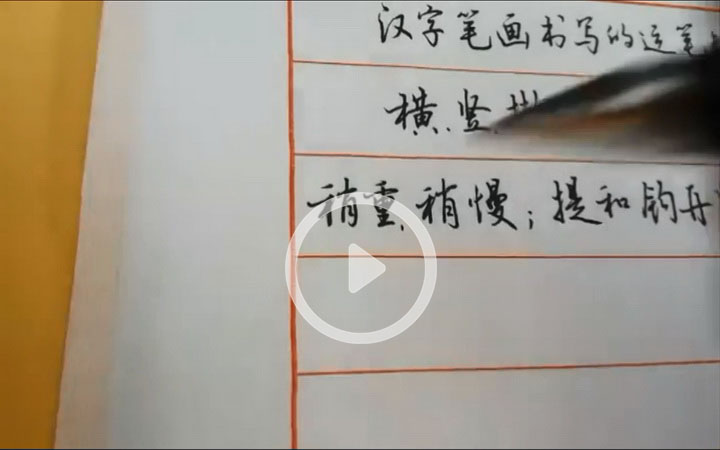 汉字笔画书写的运笔
横、竖、
稍重、稍慢；提和钩开